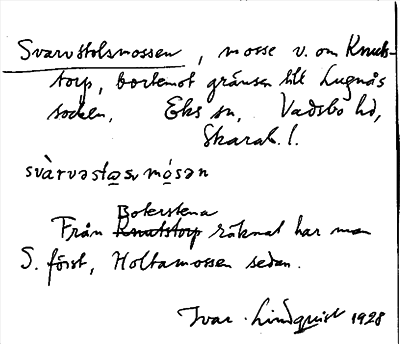 Svarvstolsmossen, mosse v. om Knuts-
torp, bortemot gränsen till Lugnås
socken, Eks sn, Vadsbo hd,
Skarab. l.
svàrvəstas̩ mósən
Boterstena
Från Knutstorp räknat har man
S. först, Holtamossen sedan.
Ivar Lindquist 1928